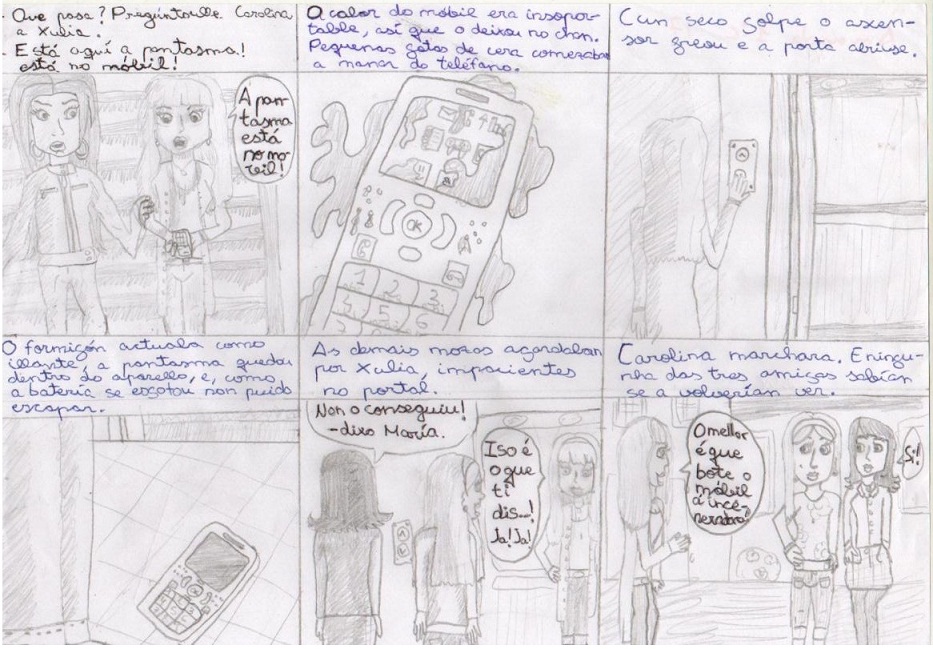 - Que pasa? Pregúntoulle Carolina
a Xulia.
- Está aquí a pantasma!
está no móbil!
A pan-
tasma
está
no mó-
vil!
O calor do móbil era insopor-
table, así que o deixou no chan.
Pequenas gotas de cera comezaban
a manar do teléfano.
OK
1 2 3
4 5 6
Cun seco golpe o ascen-
sor freou e a porta abriuse.
O formigón actuaba como
illante, a pantasma quedou
dentro do aparello, e, como
a batería se esgotou non puido
escapar.
As demais mozas agardaban
por Xulia, impacientes
no portal.
Non o conseguiu!
-dixo María.
Iso é
o que
ti
dis...!
Ja! Ja!
Carolina marchara. E ningu-
nha das tres amigas sabían
se a volverían ver.
O mellor
é que
bote o
móbil
á ince-
neradora
Si!